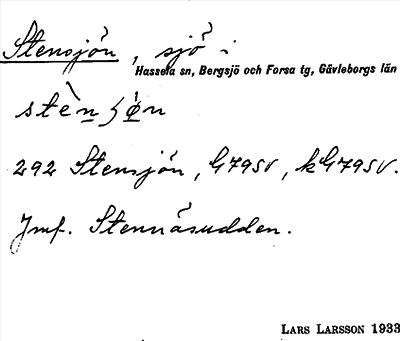 Stensjön, sjö i
Hassela sn, Bergsjö och Forsa tg, Gävleborgs län
stèn̲ ʃø̀n
292 Stensjön, G79SV, kG79SV.
Jmf. Stennäsudden.
LARS LARSSON 1933